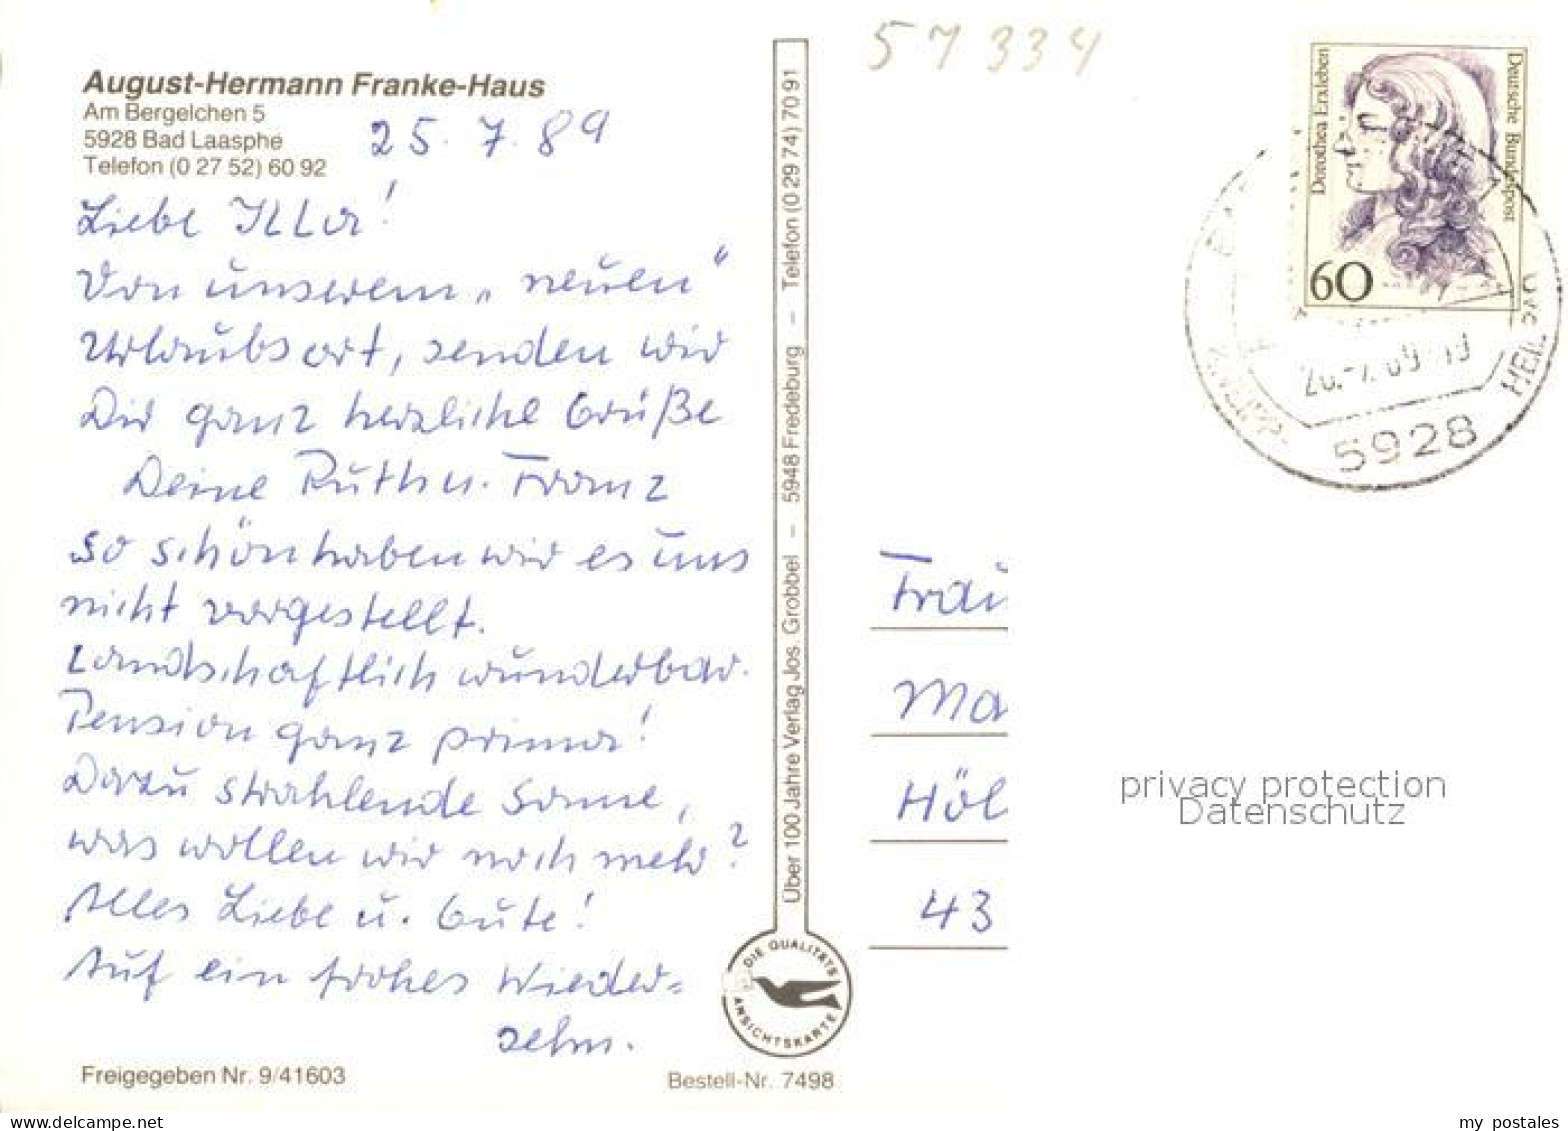 August-Hermann Franke-Haus
Am Bergelchen 5
5928 Bad Laasphe
Telefon (0 27 52) 60 92
25. 7. 89
Liebe Illa!
Von unserem „neuen"
Urlaubsort, senden wir
Dir ganz herzliche Grüße
Deine Ruth u. Franz
so schön haben wir es uns
nicht vorgestellt.
Landschaftlich wunderbar.
Pension ganz prima!
Dazu strahlende Sonne,
was wollen wir noch mehr?
Alles Liebe u. Gute!
Auf ein frohes Wieder=
sehn.
Freigegeben Nr. 9/41603
Bestell-Nr. 7498
Über 100 Jahre Verlag Jos. Grobbel – 5948 Fredeburg – Telefon (0 29 74) 70 91
DIE QUALITÄTS
ANSICHTSKARTE
57334
Dorothea Erxleben
Deutsche Bundespost
60
5928
Frau
Ma
Höl
43
privacy protection
Datenschutz
www.delcampe.net
my_postales